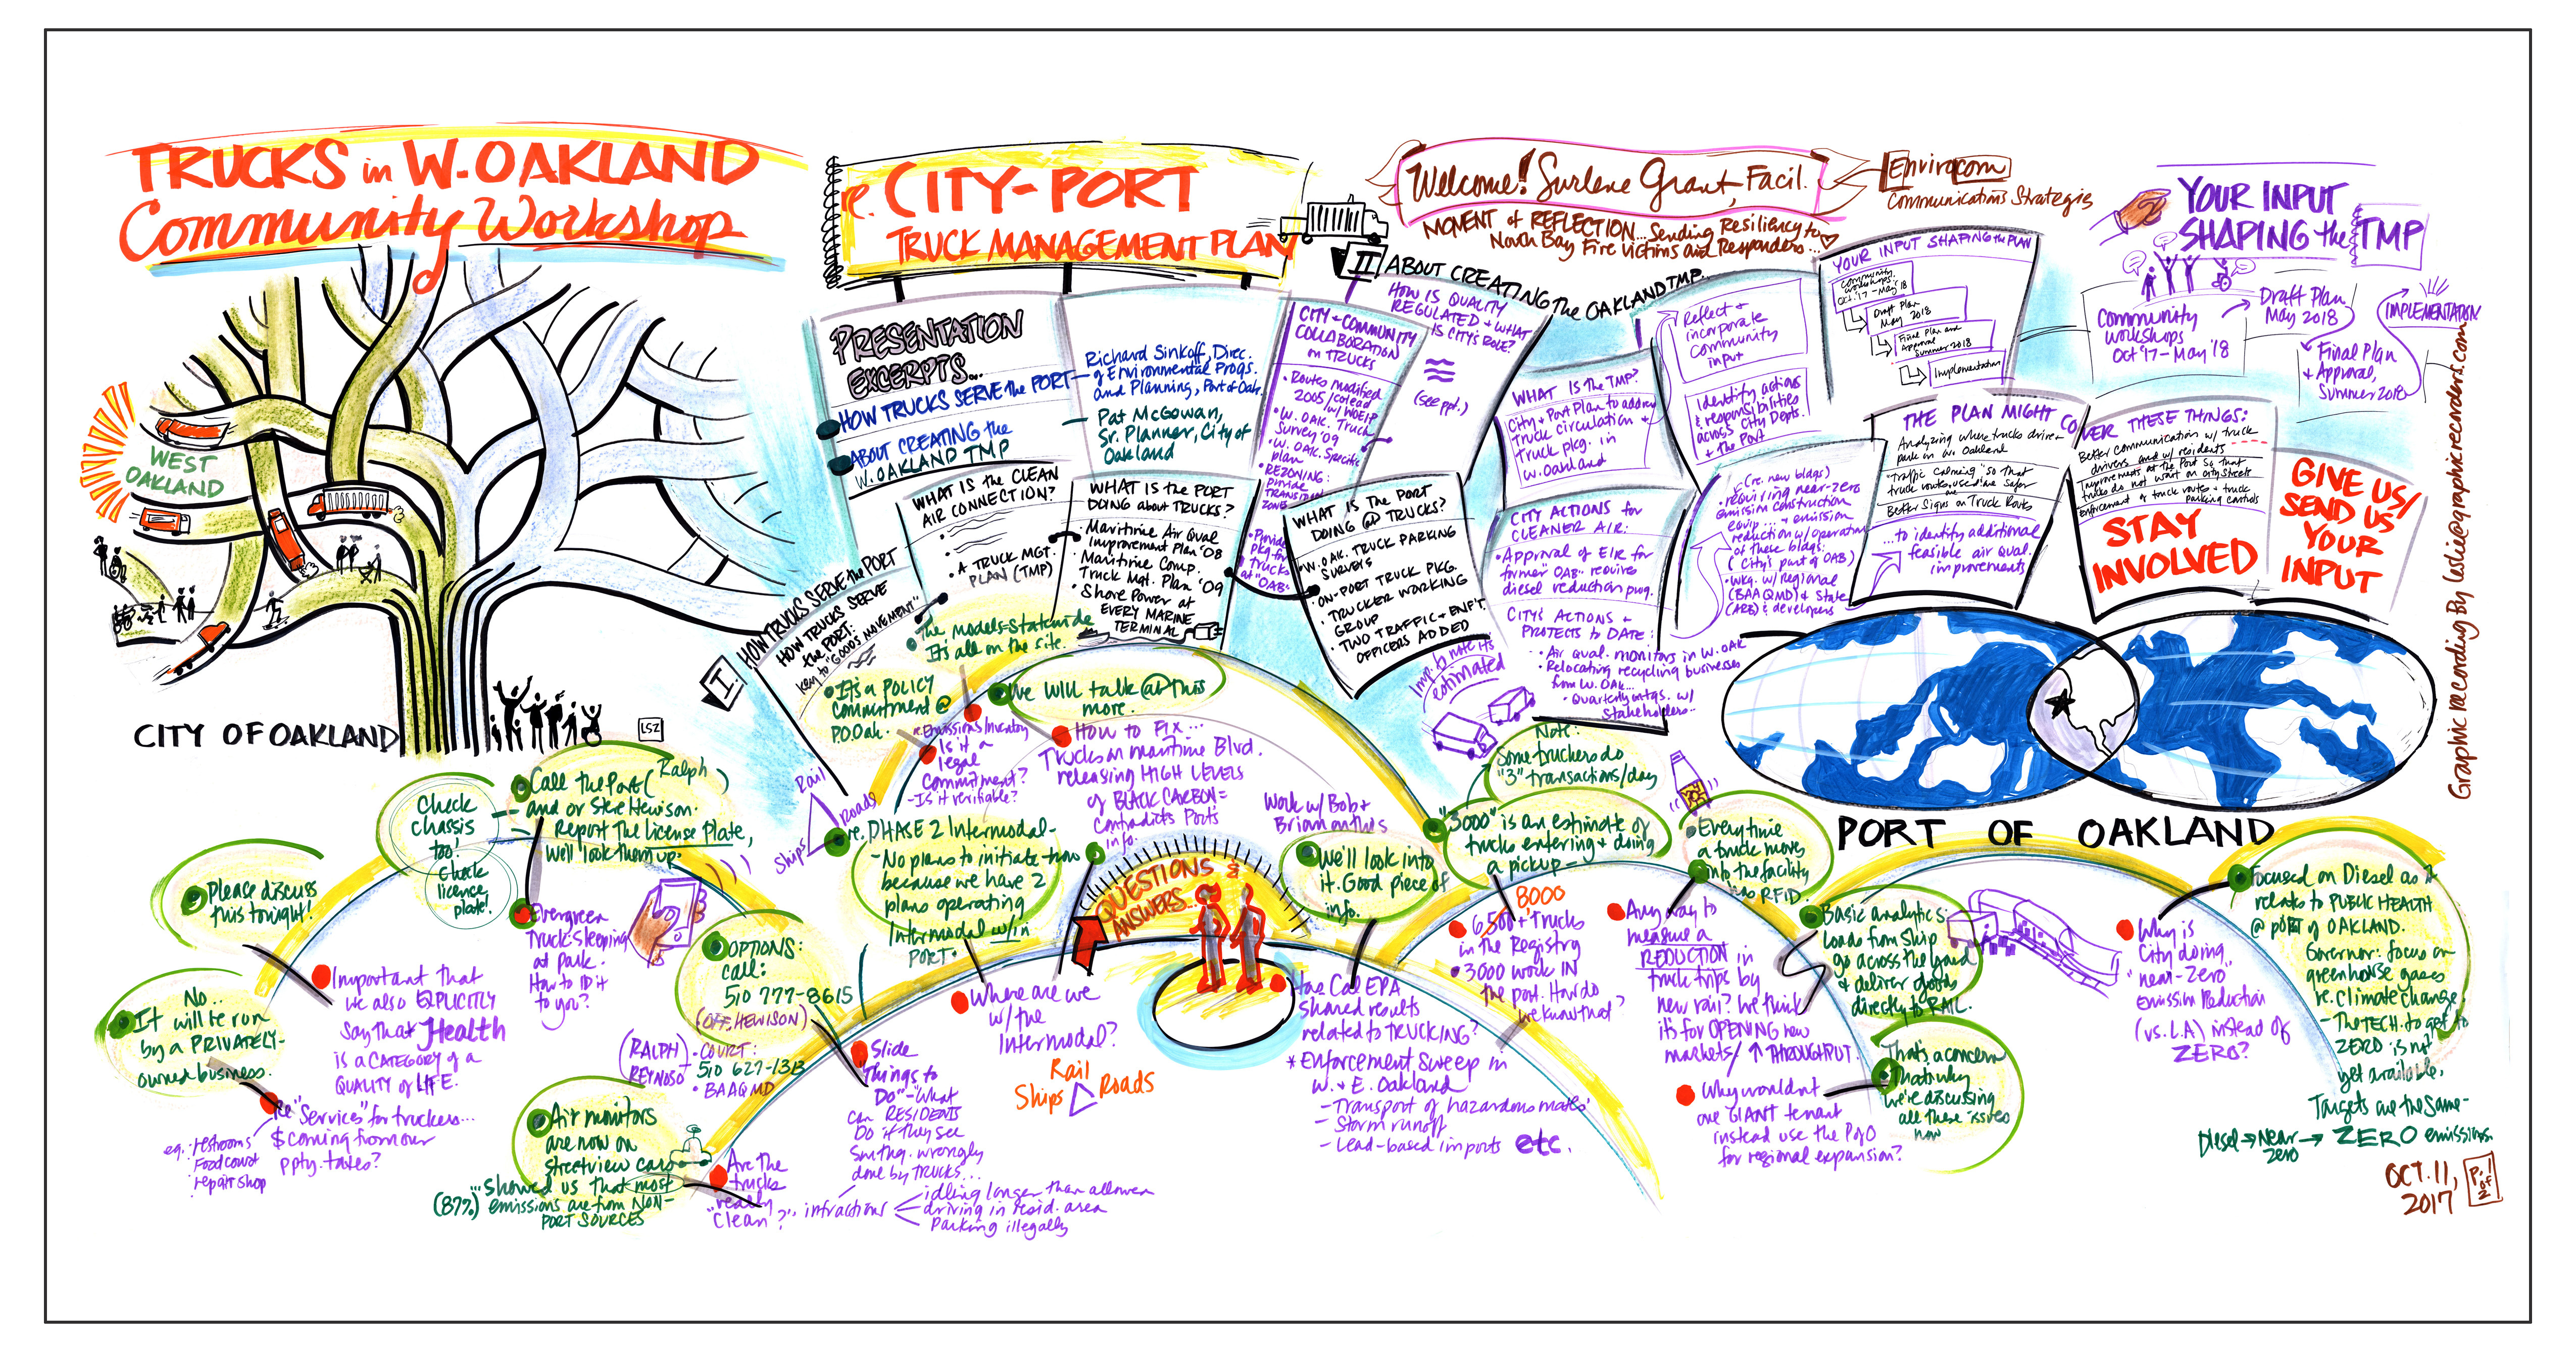 TRUCKS in W. OAKLAND
Community Workshop
re. CITY-PORT
TRUCK MANAGEMENT PLAN
Welcome! Surlene Grant, Facil.
Envirocom
Communications Strategies
MOMENT of REFLECTION... Sending Resiliency to
North Bay Fire Victims and Responders...
YOUR INPUT
SHAPING the TMP
Community
Workshops
Oct '17 - May '18
Draft Plan
May 2018
Final Plan
+ Approval,
Summer 2018
IMPLEMENTATION
WEST
OAKLAND
CITY OF OAKLAND
LSZ
PRESENTATION
EXCERPTS...
HOW TRUCKS SERVE the PORT
ABOUT CREATING the
W. OAKLAND TMP
Richard Sinkoff, Direc.
of Environmental Progs.
and Planning, Port of Oak.
Pat McGowan,
Sr. Planner, City of
Oakland
I.
HOW TRUCKS SERVE the PORT
HOW TRUCKS SERVE
the PORT:
Key to "GOODS MOVEMENT"
WHAT IS the CLEAN
AIR CONNECTION?
• A TRUCK MGT.
PLAN (TMP)
WHAT IS the PORT
DOING about TRUCKS?
• Maritime Air Qual
Improvement Plan '08
• Maritime Comp.
Truck Mgt. Plan '09
• Shore Power at
EVERY MARINE
TERMINAL
WHAT IS THE PORT
DOING @ TRUCKS?
• W. OAK. TRUCK PARKING
SURVEYS
• ON-PORT TRUCK PKG.
• TRUCKER WORKING
GROUP
• TWO TRAFFIC + ENF'T.
OFFICERS ADDED
II
ABOUT CREATING the OAKLAND TMP...
CITY + COMMUNITY
COLLABORATION
on TRUCKS
• Routes modified
2005 / colead
w/ WOEIP
• W. OAK. Truck
Survey '09
• W. OAK. Specific
plan
• REZONING:
provide
TRANSITION
ZONES
• Provide
pkg for
trucks
at "OAB"
HOW IS QUALITY
REGULATED + WHAT
IS CITY'S ROLE?
(see ppt.)
WHAT IS the TMP?
City + Port Plan to address
truck circulation +
truck pkg. in
W. Oakland
Reflect +
incorporate
community
input
Identify actions
& responsibilities
across City Depts.
+ the Port
CITY ACTIONS for
CLEANER AIR:
• Approval of EIR for
former "OAB" requires
diesel reduction prog.
CITY'S ACTIONS +
PROTECTS to DATE:
• Air qual. monitors in W. OAK
• Relocating recycling businesses
from W. OAK...
• Quarterly mtgs. w/
stakeholders..
(re. new bldgs)
• requiring near-zero
emission construction
equip... + emission
reduction w/ operation
of these bldgs:
(City's part of OAB)
• Wkg. w/ Regional
(BAAQMD) & State
(ARB) & developers
YOUR INPUT SHAPING the PLAN
Community
Workshops
Oct '17 - May '18
Draft Plan
May 2018
Final Plan and
Approval
Summer 2018
Implementation
THE PLAN MIGHT COVER THESE THINGS:
Analyzing where trucks drive +
park in W. Oakland
"Traffic Calming" so that
truck routes used are safer
Better Signs on Truck Routes
...to identify additional
feasible air qual.
improvements
Better communication w/ truck
drivers and w/ residents
Improvements at the Port so that
trucks do not wait on city streets
Enforcement of truck routes + truck
parking controls
STAY
INVOLVED
GIVE US/
SEND US
YOUR
INPUT
Graphic Recording By leslie@graphicrecorders.com
PORT OF OAKLAND
The models = statewide
It's all on the site.
It's a POLICY
commitment @
P.O.Oak.
We will talk @ this
more.
re. Emissions Inventory
Is it a
legal
commitment?
- Is it verifiable?
How to FIX...
Trucks on maritime Blvd.
releasing HIGH LEVELS
of BLACK CARBON =
contradicts Port's
info.
Imp. to note its
estimated
Note:
Some truckers do
"3" transactions/day
"3000" is an estimate of
trucks entering + doing
a pickup -
8000
6,500+ Trucks
in the Registry
3000 work IN
the port. How do
we know that?
Check
chassis
too!
Check
license
plate!
Call the Port (Ralph)
and or Steve Hewison.
Report the license plate,
we'll look them up.
Evergreen
Truck sleeping
at park.
How to ID it
to you?
Please discuss
this tonight!
Important that
we also EXPLICITLY
say that Health
is a CATEGORY of a
QUALITY of LIFE.
No..
It will be run
by a PRIVATELY-
owned business.
Re "Services" for truckers...
$ coming from our
ppty. taxes?
eg. restrooms
Food court
repair shop
OPTIONS:
call:
510 777-8615
(OFF. HEWISON)
(RALPH
REYNOSO)
• COURT:
510 627-1313
• BAAQMD
Air monitors
are now on
streetview cars
..."showed us that most
(87%) emissions are from NON-
PORT SOURCES
Are the
trucks
"really
clean"?
Slide
"Things to
Do" - What
can RESIDENTS
DO if they see
Smthg. wrongly
done by TRUCKS...
infractions
idling longer than allowed
driving in resid. area
Parking illegally
Rail
Roads
Ships
re. PHASE 2 Intermodal -
- No plans to initiate now
because we have 2
plans operating
Intermodal w/in
PORT.
Where are we
w/ the
Intermodal?
Rail
Ships
Roads
QUESTIONS &
ANSWERS...
Work w/ Bob +
Brian on this
We'll look into
it. Good piece of
info.
Has Cal EPA
shared results
related to TRUCKING?
* Enforcement Sweep in
W. + E. Oakland
- Transport of hazardous mat's
- Storm runoff
- Lead-based imports etc.
Every time
a truck moves
into the facility
has RFID.
Any way to
measure a
REDUCTION in
truck trips by
new rail? We think
it's for OPENING new
markets / ↑ THROUGHPUT.
Basic analytics:
loads from ship
go across the yard
+ deliver goods
directly to RAIL.
Why wouldn't
one GIANT tenant
instead use the PoO
for regional expansion?
That's a concern
That's why
we're discussing
all these issues
now
Why is
City doing
"near-zero"
Emission Reduction
(vs. L.A) instead of
ZERO?
Focused on Diesel as it
relates to PUBLIC HEALTH
@ PORT of OAKLAND.
Governor: focus on
greenhouse gases
re. Climate change.
- The TECH. to get to
ZERO is not
yet available.
Targets are the same -
Diesel → Near zero → ZERO emissions.
OCT. 11,
2017
P. 1
of
2